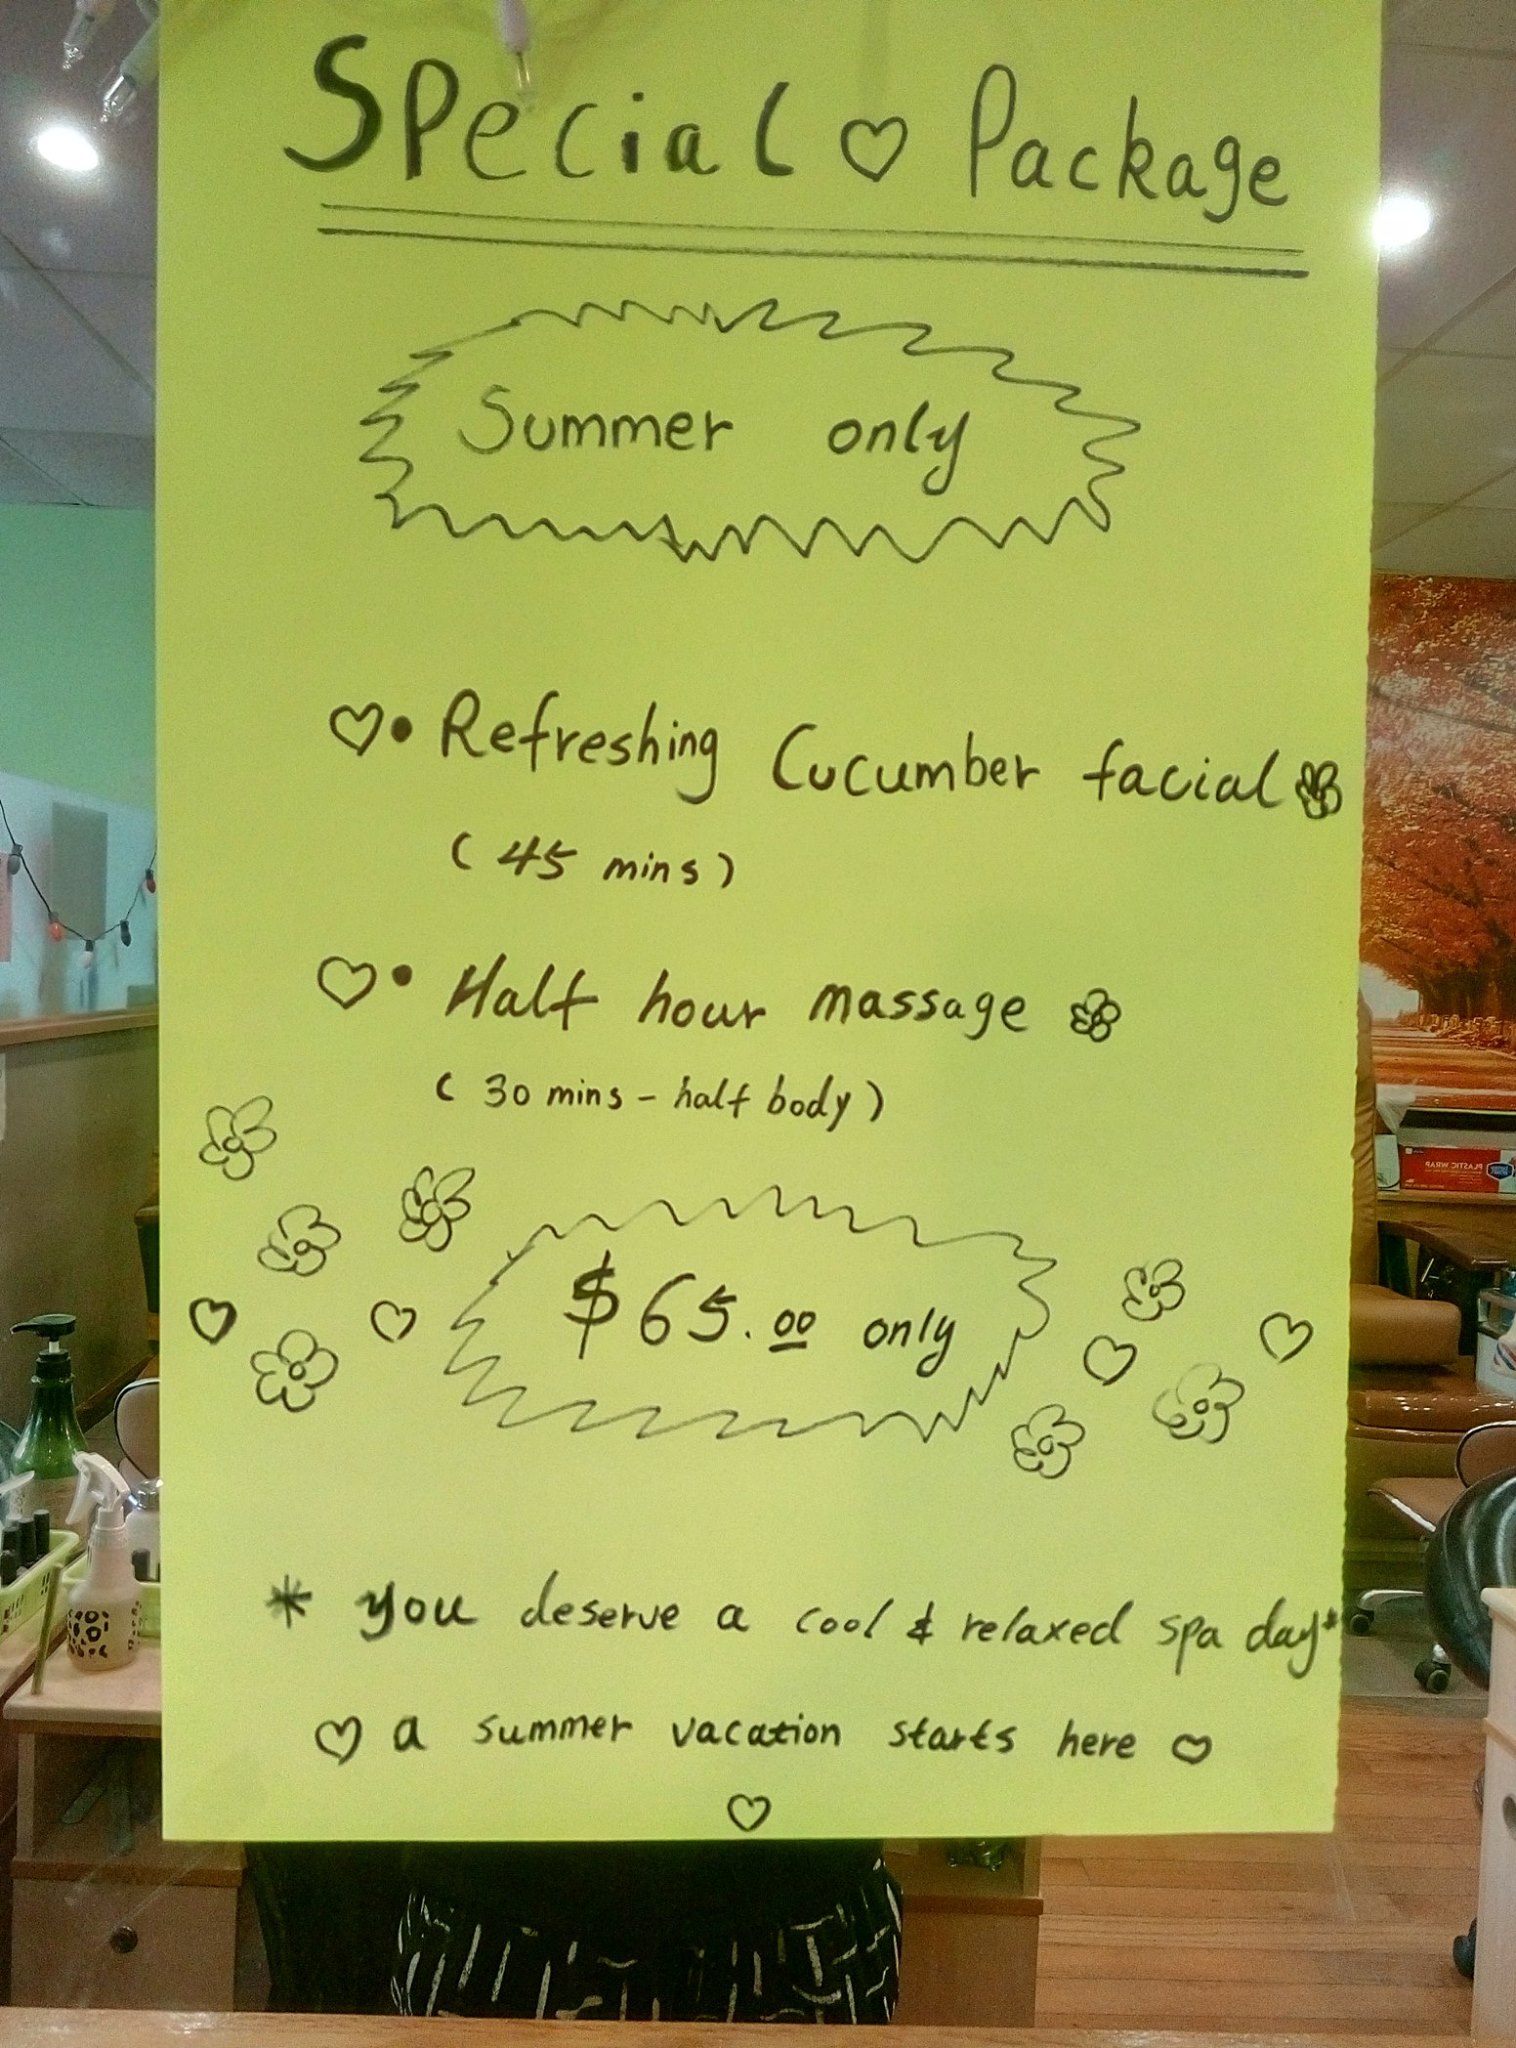 Special ♡ Package
Summer only
♡• Refreshing Cucumber facial
(45 mins)
♡• Half hour massage
(30 mins - half body)
$65.00 only
* you deserve a cool & relaxed spa day*
♡ a summer vacation starts here ♡
♡
PLASTIC WRAP